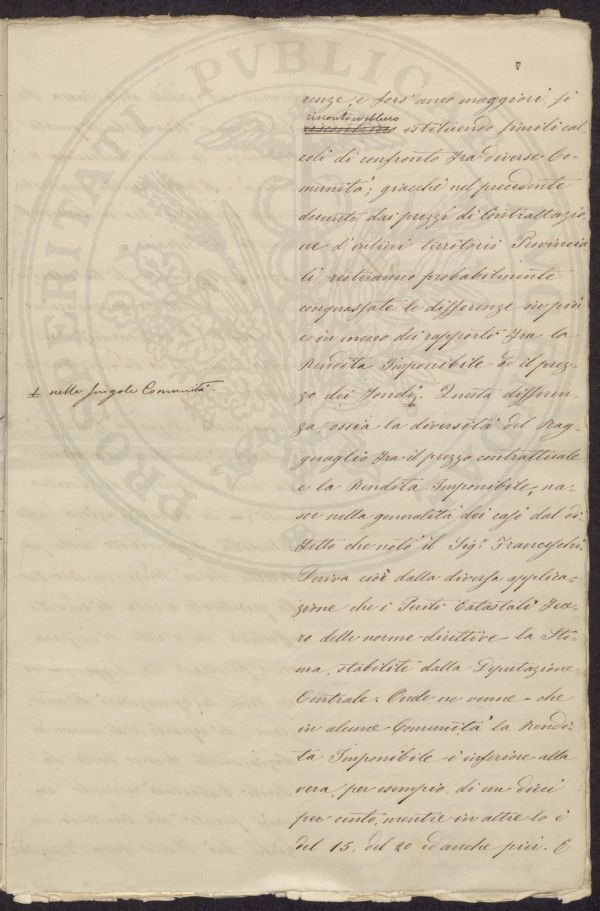 PROSPERITATI PVBLIC
renze, e fors' anco maggiori, si
riscontrerebbero
istituendo simili cal
coli di confronto fra diverse Co-
munità; giacchè nel precedente
desunto dai prezzi di Contrattazio
ne d'intieri territorii Provincia
li resteranno probabilmente
conguastate le differenze in più
e in meno dei rapporti fra la
Rendita Imponibile ed il prez-
zo dei fondi ⊥. Questa differen-
⊥ nelle singole Comunità.
za, ossia la diversità del Rag-
guaglio fra il prezzo contrattuale
e la Rendita Imponibile, na-
sce nella generalità dei casi dal di-
fetto che notò il Sigr. Franceschi.
Deriva cioè dalla diversa applica-
zione che i Periti Catastali fece-
ro delle norme direttive la Sti-
ma, stabilite dalla Deputazione
Centrale. Onde ne venne che
in alcune Comunità la Rendi-
ta Imponibile è inferiore alla
vera, per esempio, di un dieci
per cento, mentre in altre lo è
del 15, del 20 ed anche più. E